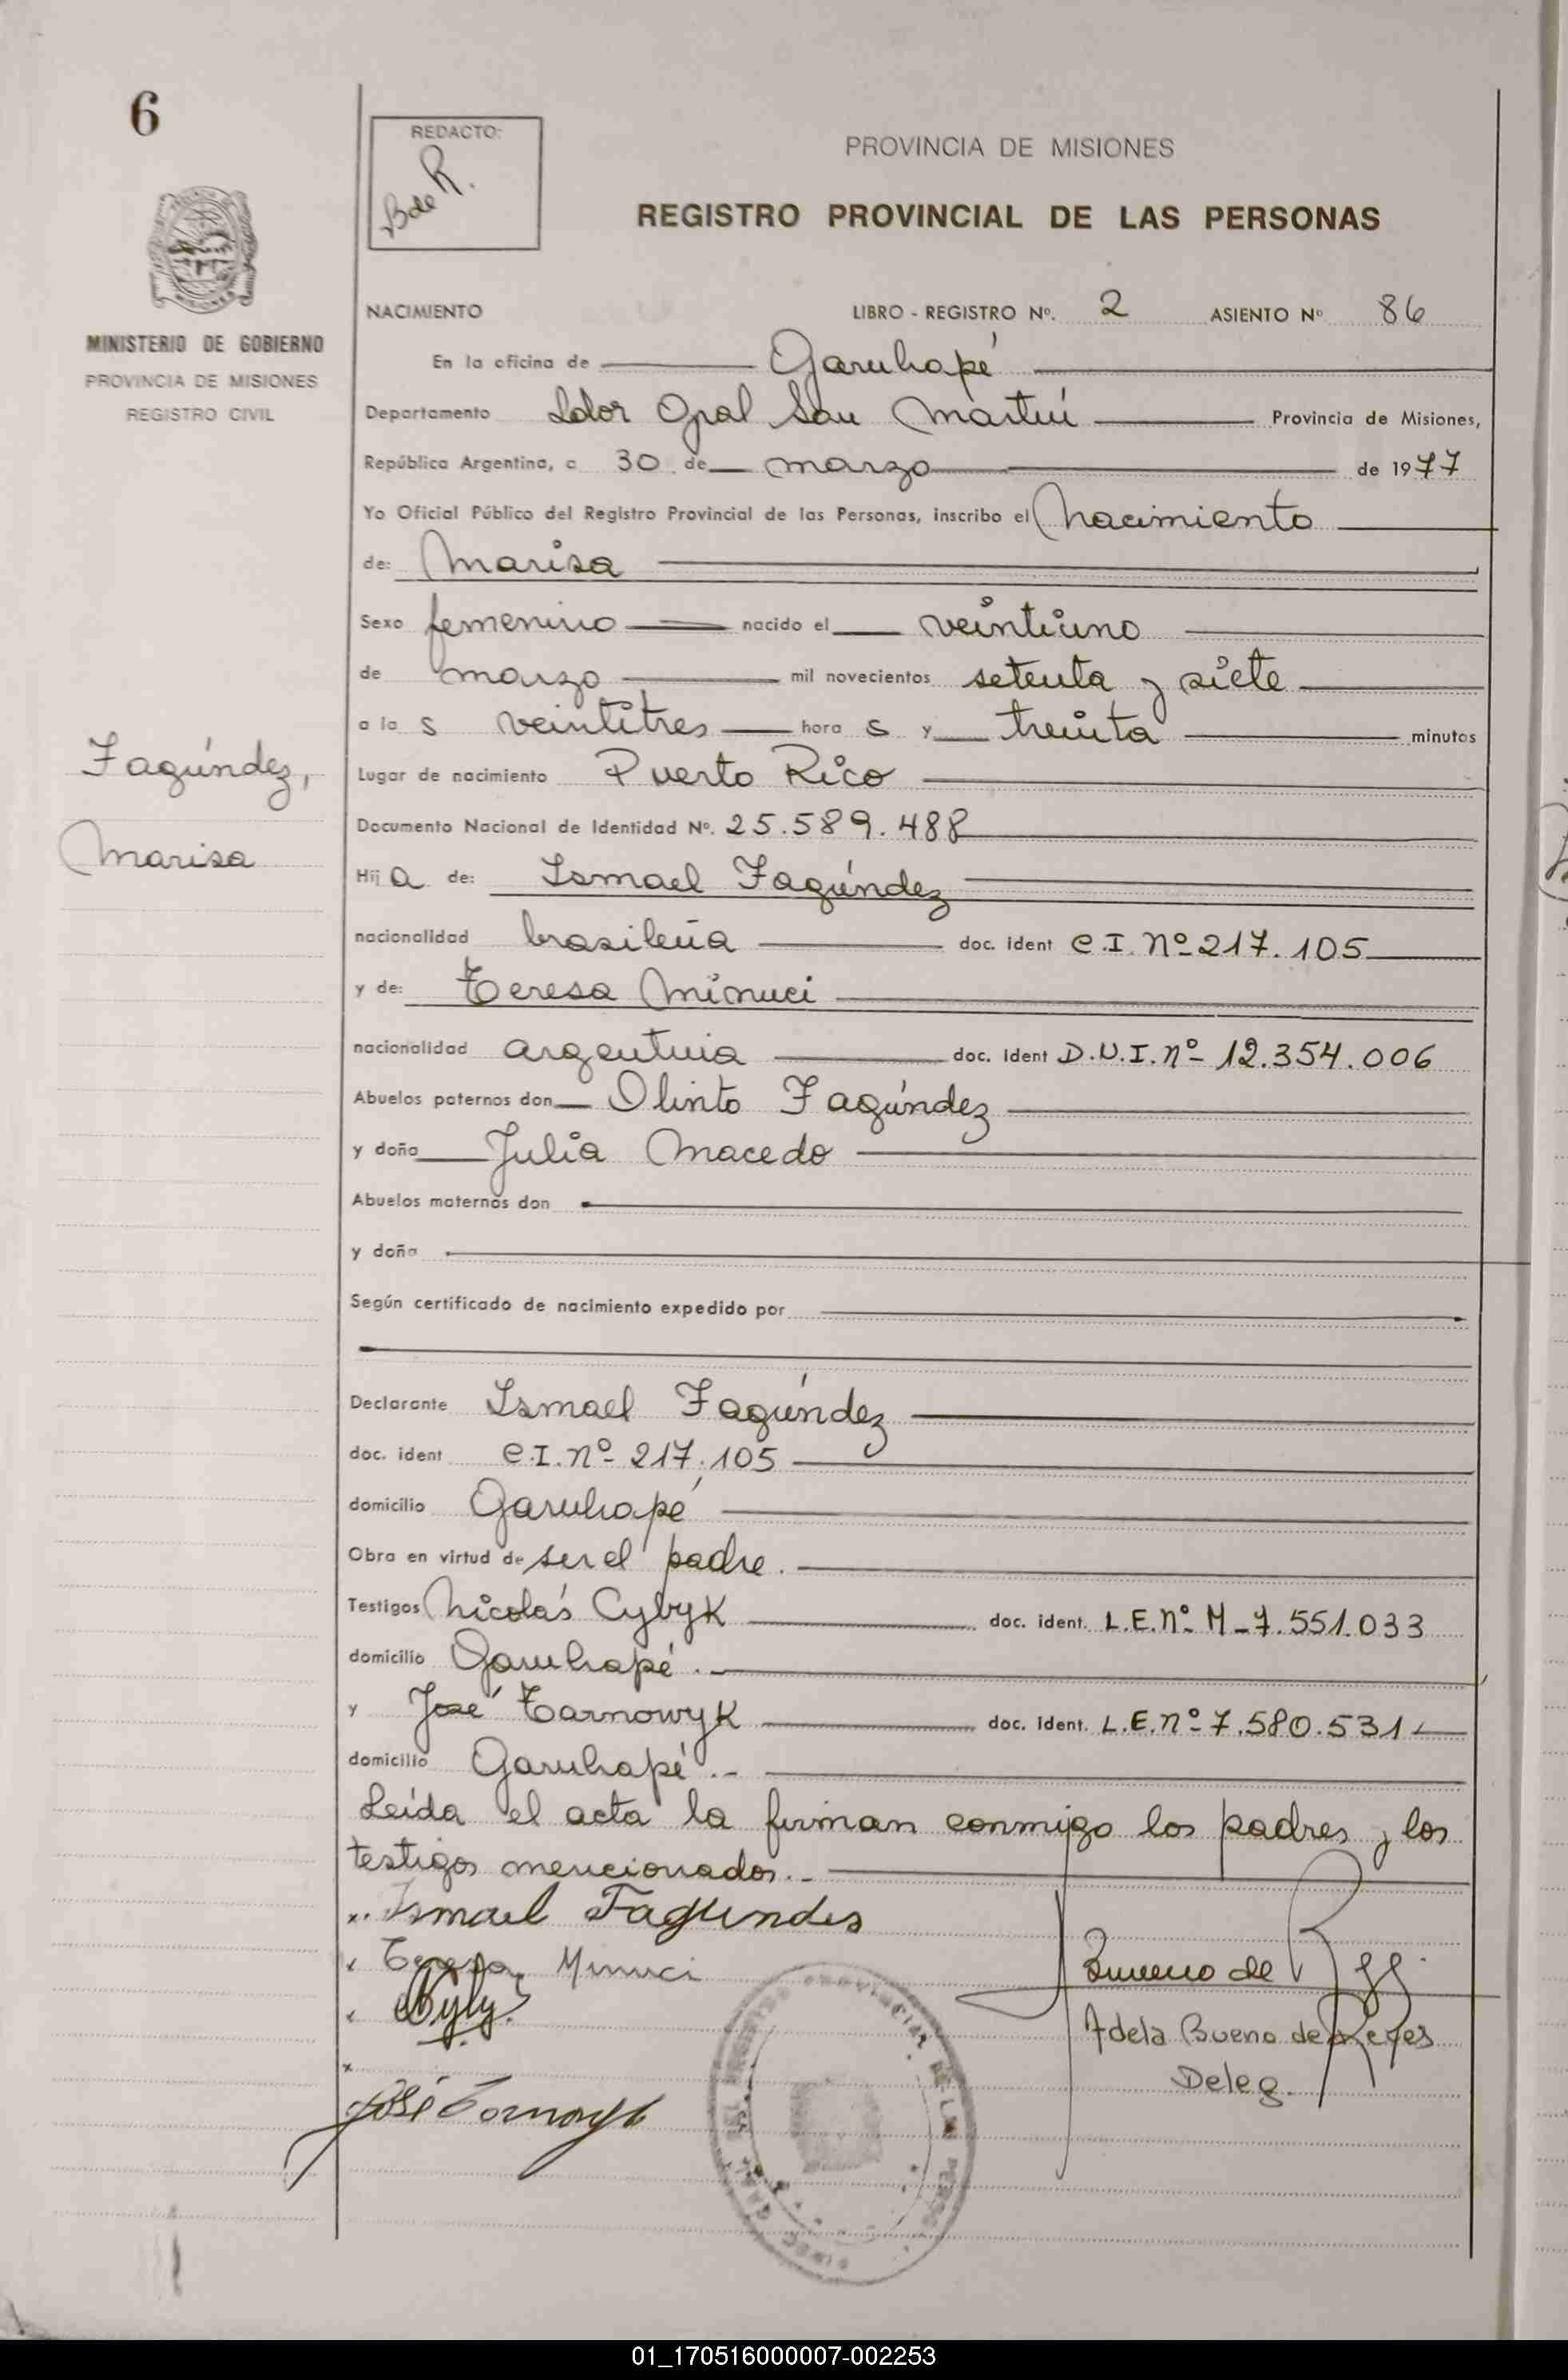 6
REDACTO:
B de R.
PROVINCIA DE MISIONES
REGISTRO PROVINCIAL DE LAS PERSONAS
MISIONES
MINISTERIO DE GOBIERNO
PROVINCIA DE MISIONES
REGISTRO CIVIL
NACIMIENTO LIBRO - REGISTRO Nº. 2 ASIENTO Nº 86
En la oficina de Garuhapé
Departamento Ldor Gral San Martín Provincia de Misiones,
República Argentina, a 30 de marzo de 1977
Yo Oficial Público del Registro Provincial de las Personas, inscribo el nacimiento
de: Marisa
Sexo femenino nacido el veintiuno
de marzo mil novecientos setenta y siete
a la s veintitres hora s y treinta minutos
Fagúndez,
Marisa
Lugar de nacimiento Puerto Rico
Documento Nacional de Identidad Nº. 25.589.488
Hij a de: Ismael Fagúndez
nacionalidad brasileña doc. ident C.I. Nº 217.105
y de: Teresa Minuci
nacionalidad argentina doc. ident D.N.I. nº 12.354.006
Abuelos paternos don Olinto Fagúndez
y doña Julia Macedo
Abuelos maternos don
y doña
Según certificado de nacimiento expedido por
Declarante Ismael Fagúndez
doc. ident C.I. nº 217.105
domicilio Garuhapé
Obra en virtud de ser el padre.
Testigos Nicolás Cybyk doc. ident. L.E. Nº M-7.551.033
domicilio Garuhapé.
y José Tarnowyk doc. ident. L.E. nº 7.580.531
domicilio Garuhapé.-
Leída el acta la firman conmigo los padres y los
testigos mencionados.-
x. Ismael Fagundes
x Teresa Minuci
x
x
José
Bueno de
Adela Bueno de Reyes
Deleg.
01_170516000007-002253